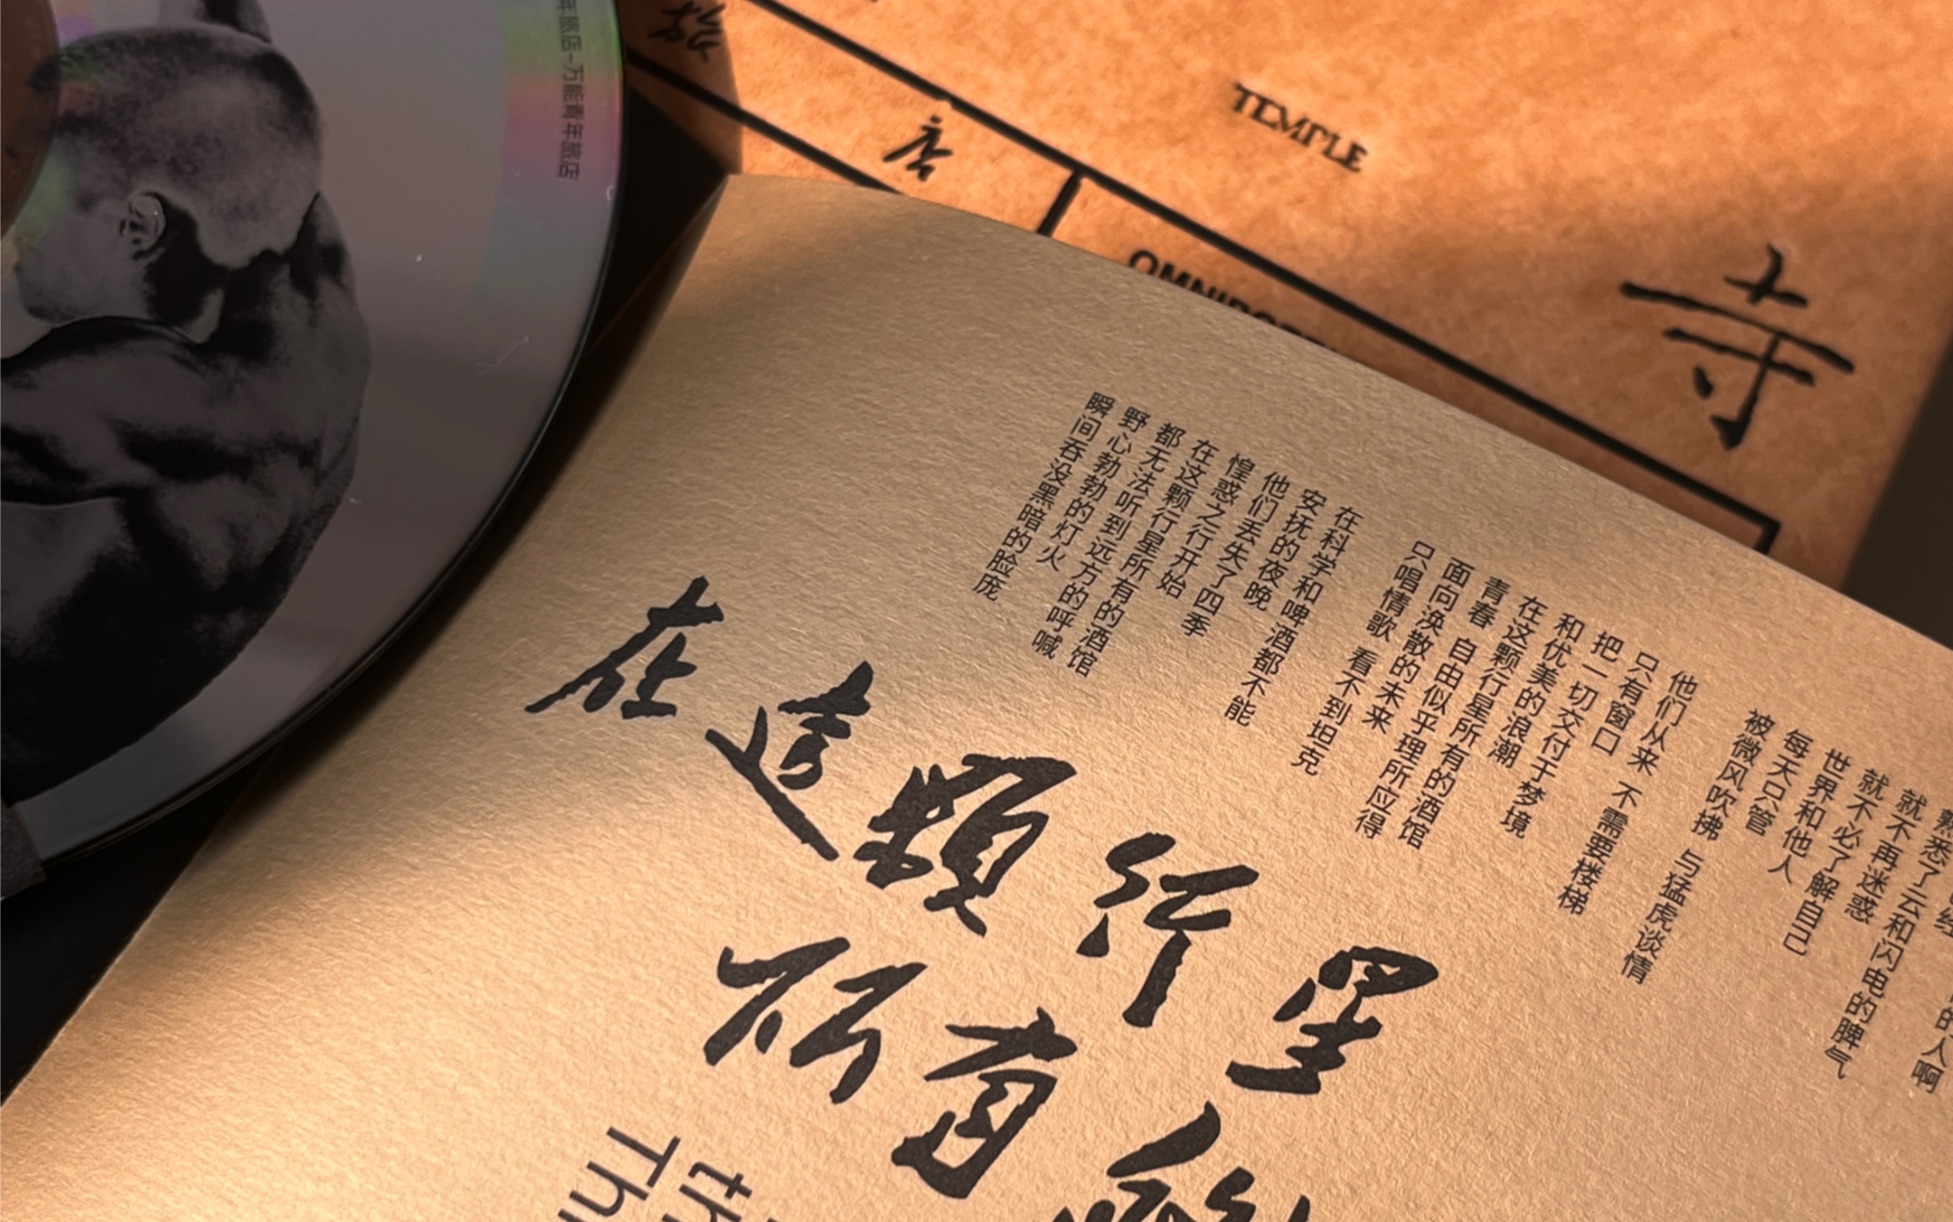 年旅店–万能青年旅店
旅
店
TEMPLE
寺
的人啊
熟悉了云和闪电的脾气
就不再迷惑
就不必了解自己
世界和他人
每天只管
被微风吹拂 与猛虎谈情
他们从来 不需要楼梯
只有窗口
把一切交付于梦境
和优美的浪潮
在这颗行星所有的酒馆
青春 自由似乎理所应得
面向涣散的未来
只唱情歌 看不到坦克
在科学和啤酒都不能
安抚的夜晚
他们丢失了四季
惶惑之行开始
在这颗行星所有的酒馆
都无法听到远方的呼喊
野心勃勃的灯火
瞬间吞没黑暗的脸庞
在這顆行星
所有